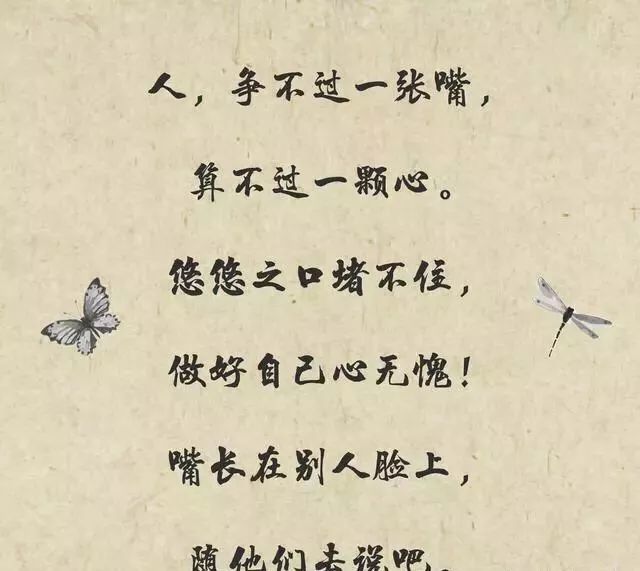 人，争不过一张嘴，
算不过一颗心。
悠悠之口堵不住，
做好自己心无愧！
嘴长在别人脸上，
随他们去说吧。